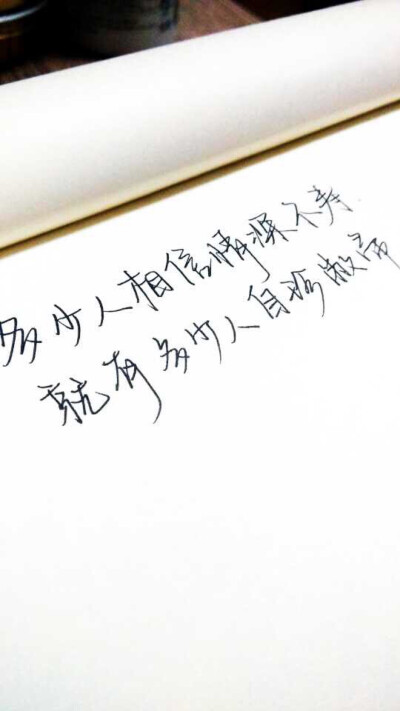 多少人相信情深不寿
就有多少人自珍敝帚